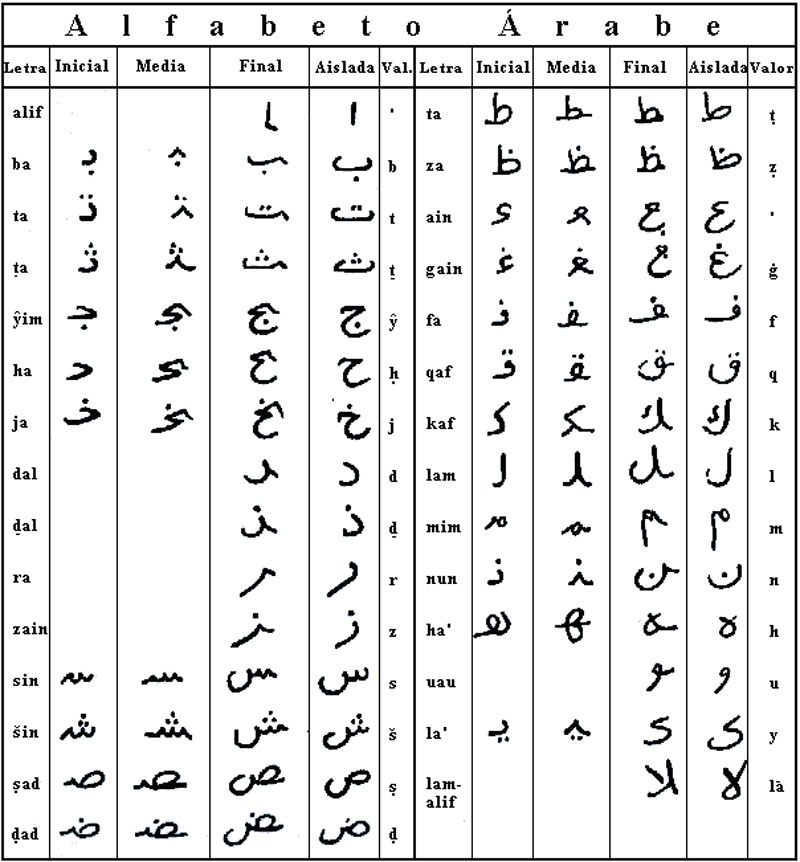 Alfabeto Árabe
Letra Inicial Media Final Aislada Val. Letra Inicial Media Final Aislada Valor
alif ـا ا ' ta طـ ـطـ ـط ط ṭ
ba بـ ـبـ ـب ب b za ظـ ـظـ ـظ ظ ẓ
ta تـ ـتـ ـت ت t ain عـ ـعـ ـع ع '
ṯa ثـ ـثـ ـث ث ṯ gain غـ ـغـ ـغ غ ġ
ŷim جـ ـجـ ـج ج ŷ fa فـ ـفـ ـف ف f
ha حـ ـحـ ـح ح ḥ qaf قـ ـقـ ـق ق q
ja خـ ـخـ ـخ خ j kaf كـ ـكـ ـك ك k
dal ـد د d lam لـ ـلـ ـل ل l
ḏal ـذ ذ ḏ mim مـ ـمـ ـم م m
ra ـر ر r nun نـ ـنـ ـن ن n
zain ـز ز z ha' هـ ـهـ ـه ه h
sin سـ ـسـ ـس س s uau ـو و u
šin شـ ـشـ ـش ش š la' يـ ـيـ ـى ى y
ṣad صـ ـصـ ـص ص ṣ lam-alif ـلا لا lā
ḍad ضـ ـضـ ـض ض ḍ